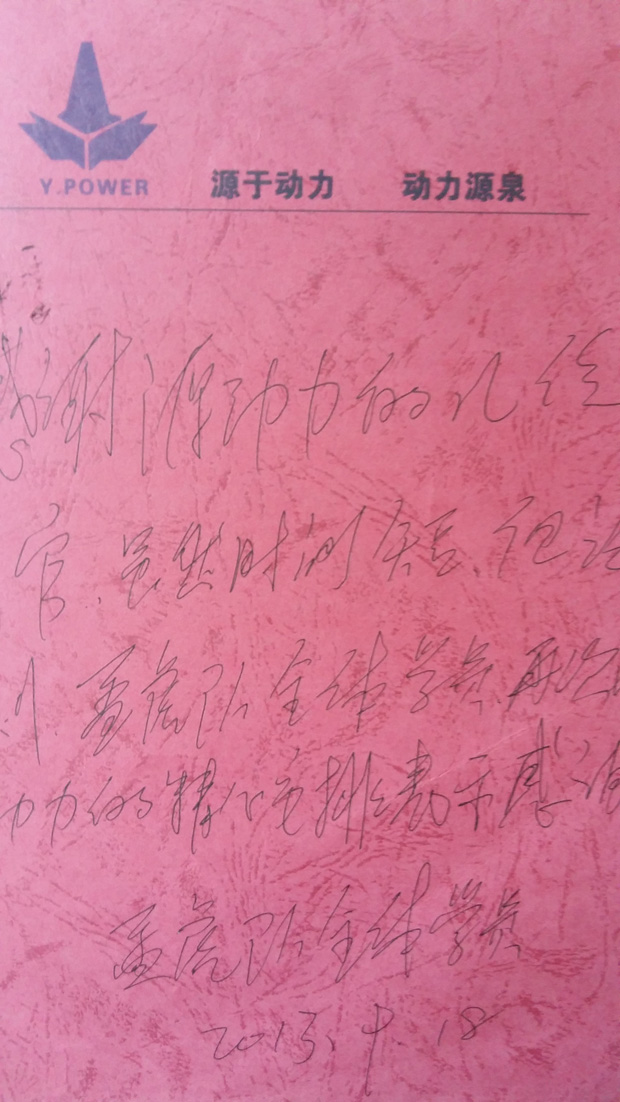 Y.POWER 源于动力 动力源泉
感谢源动力的几位
官、虽然时间短、但
孟虎队全体学员、再次
力的精心安排表示感谢
孟虎队全体学员
2013.9.18